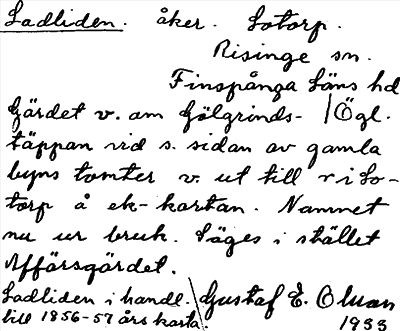 Ladliden. åker. Sotorp.
Risinge sn.
Finspånga läns hd
Gärdet v. om Gölgrinds- Ögl.
täppan vid s. sidan av gamla
byns tomter v. ut till r i So-
torp å ek-kartan. Namnet
nu ur bruk. Säges i stället
Affärsgärdet.
Ladliden i handl. Gustaf E. Olsson
till 1856-57 års karta. 1933